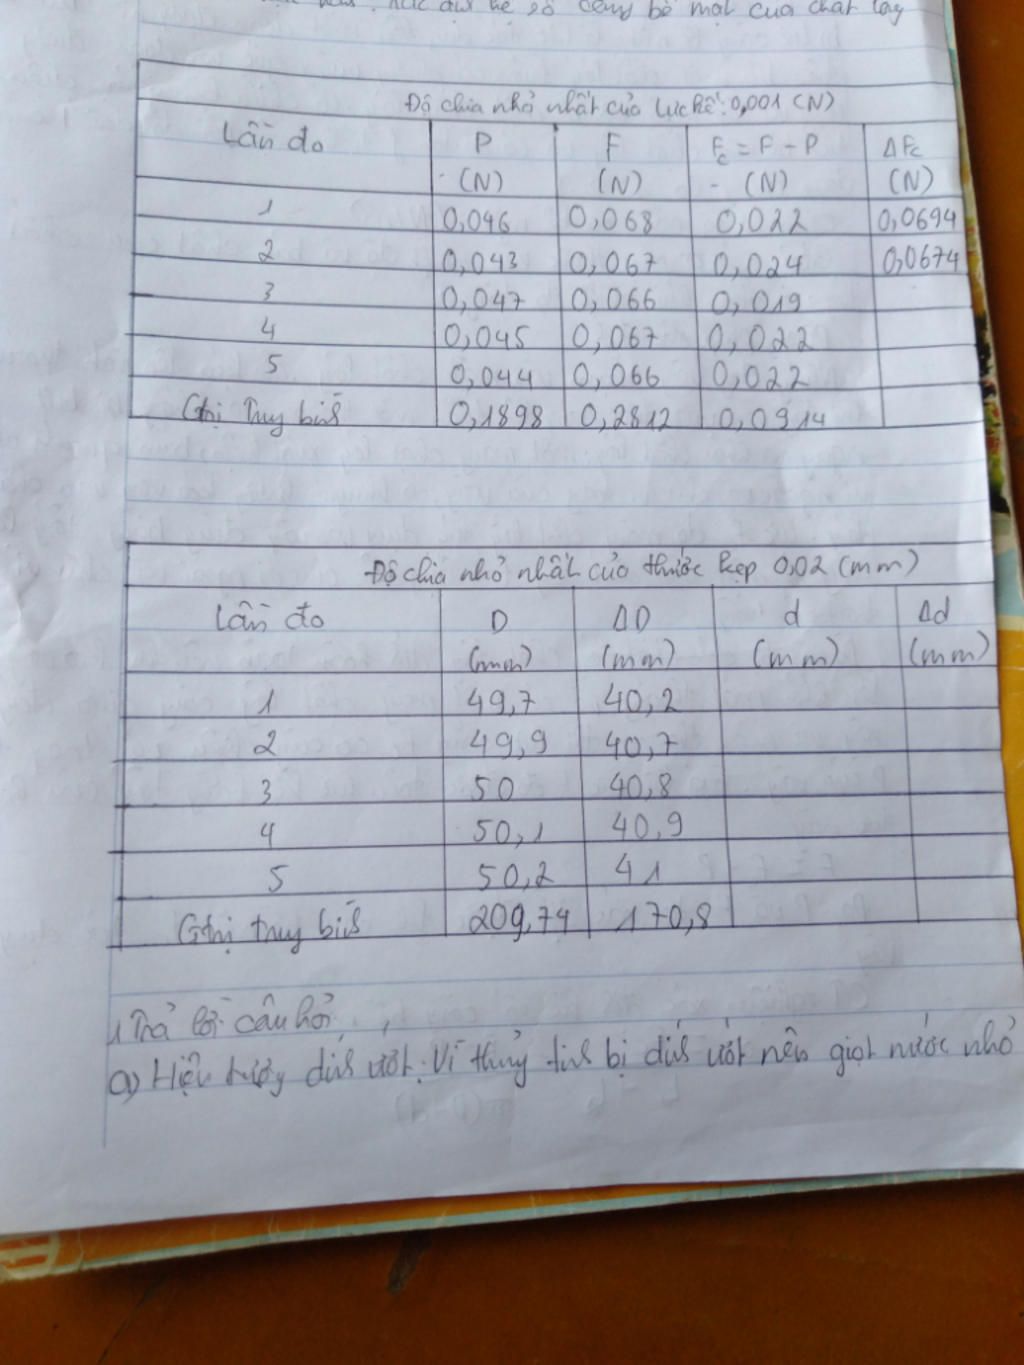 hệ số căng bề mặt của chất lỏng
Độ chia nhỏ nhất của lực kế: 0,001 (N)
Lần đo P F Fc = F - P ΔFc
(N) (N) (N) (N)
1 0,046 0,068 0,022 0,0694
2 0,043 0,067 0,024 0,0674
3 0,047 0,066 0,019
4 0,045 0,067 0,022
5 0,044 0,066 0,022
Gtrị Truy biế 0,1898 0,2812 0,0914
Độ chia nhỏ nhất của thước kẹp 0,02 (mm)
Lần đo D ΔD d Δd
(mm) (mm) (mm) (mm)
1 49,7 40,2
2 49,9 40,7
3 50 40,8
4 50,1 40,9
5 50,2 41
Gtrị truy biế 209,74 170,8
Trả lời câu hỏi
a) Hiện tượng dính ướt: Vì thủy tinh bị dính ướt nên giọt nước nhỏ